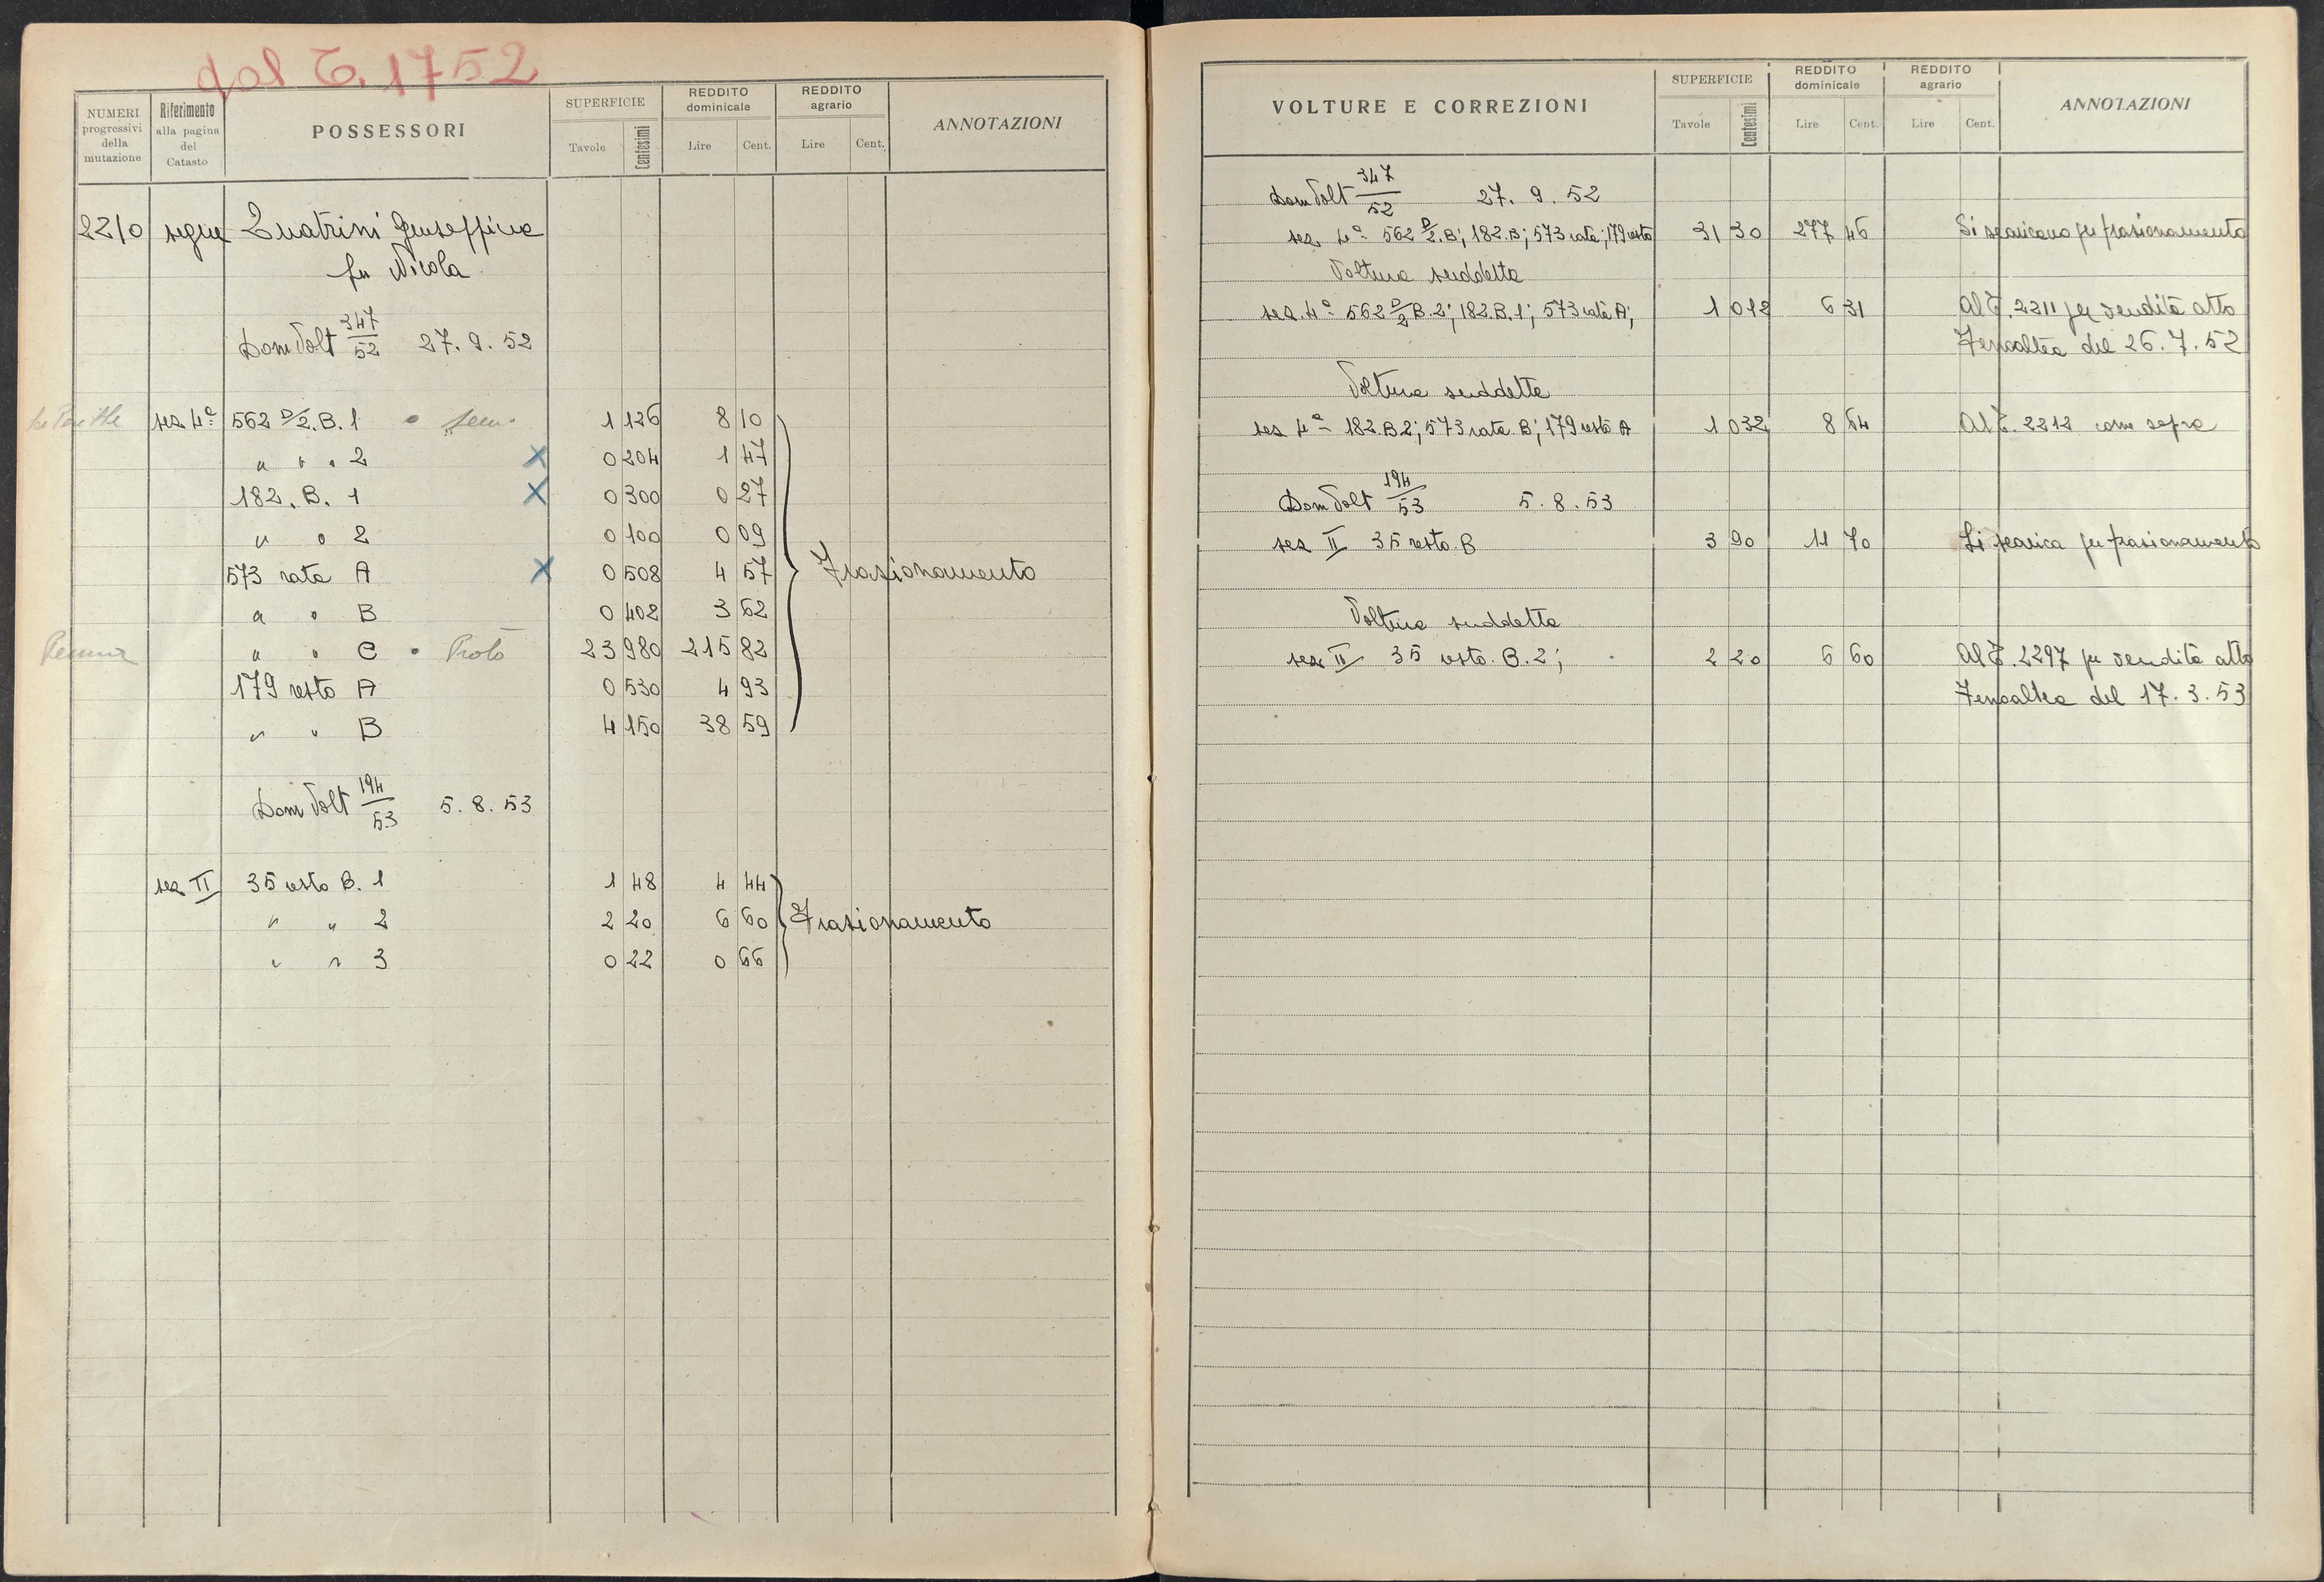 dal T. 1752
NUMERI progressivi della mutazione | Riferimento alla pagina del Catasto | POSSESSORI | SUPERFICIE Tavole Centesimi | REDDITO dominicale Lire Cent. | REDDITO agrario Lire Cent. | ANNOTAZIONI
2210 segue Quatrini Giuseppina
fu Nicola
Dom Volt 347/52 27. 9. 52
sez 4ª 562 P/2. B. 1 sem. 1 126 8 10
" " " 2 X 0 204 1 47
182. B. 1 X 0 300 0 27
" " 2 0 100 0 09
573 rata A X 0 508 4 57 Frazionamento
" " B 0 402 3 62
" " C Prato 23 980 215 82
179 resto A 0 530 4 93
" " B 4 150 38 59
Dom Volt 194/53 5. 8. 53
sez II 35 resto B. 1 1 48 4 44
" " 2 2 20 6 60 Frazionamento
" " 3 0 22 0 66
VOLTURE E CORREZIONI | SUPERFICIE Tavole Centesimi | REDDITO dominicale Lire Cent. | REDDITO agrario Lire Cent. | ANNOTAZIONI
Dom Volt 347/52 27. 9. 52
sez 4ª 562 P/2. B; 182. B; 573 rata; 179 resto 31 30 277 46 Si scaricano per frazionamento
Voltura suddetta
sez. 4ª 562 P/2 B. 2; 182. B. 1; 573 rata A; 1 012 6 31 Al T. 2211 per vendita atto
Fenoaltea del 26. 7. 52
Voltura suddetta
sez 4ª 182. B 2; 573 rata B; 179 resto A 1 032 8 64 Al T. 2212 come sopra
Dom Volt 194/53 5. 8. 53
sez II 35 resto B 3 90 11 70 Si scarica per frazionamento
Voltura suddetta
sez II 35 resto. B. 2; 2 20 6 60 Al T. 2297 per vendita atto
Fenoaltea del 17. 3. 53